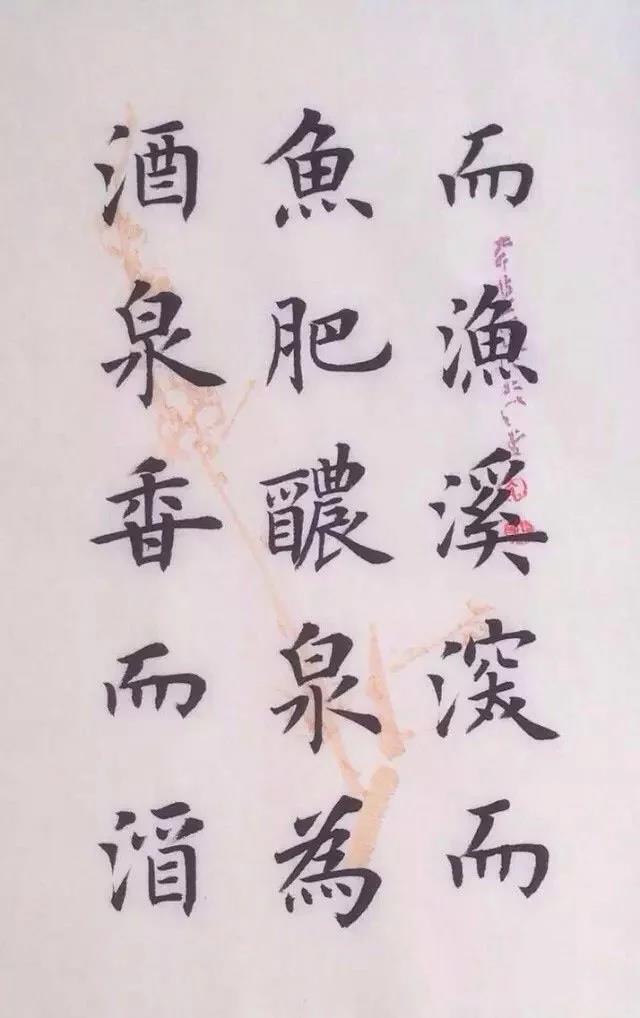 而漁溪深而
魚肥醲泉為
酒泉香而酒